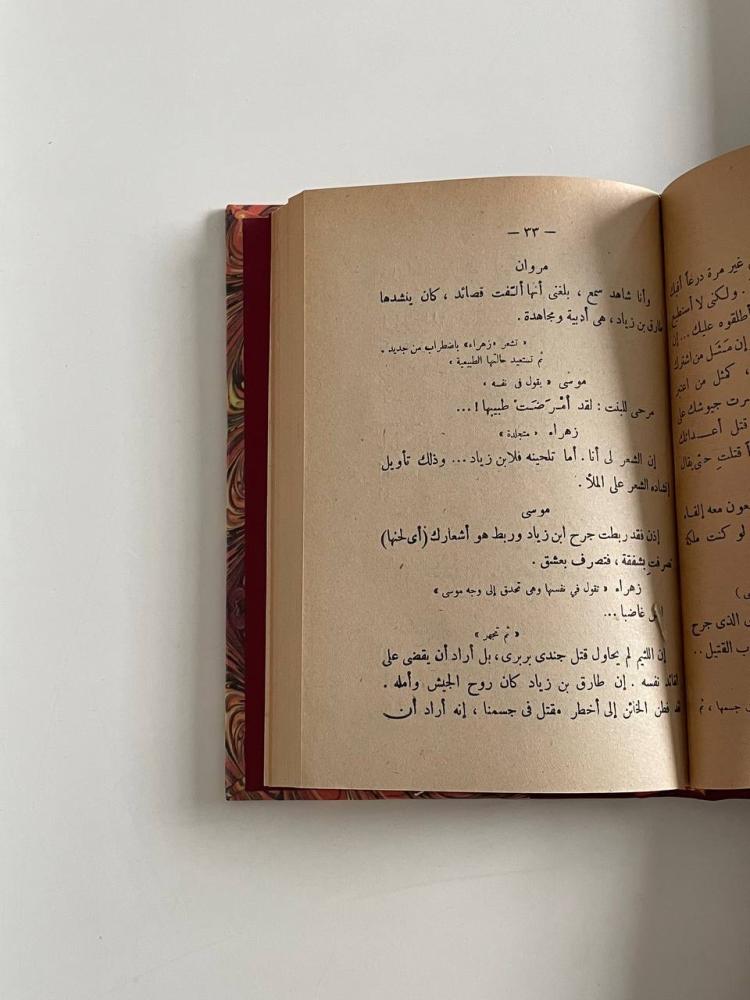 — ٣٣ —
مروان
وأنا شاهد سمع ، بلغنى أنها ألّفت قصائد ، كان ينشدها
طارق بن زياد ، هى أدبية ومجاهدة .
« تشعر «زهراء» باضطراب من جديد .
ثم تستعيد حالتها الطبيعية »
موسى « يقول فى نفسه »
مرحى للبنت : لقد أمْرَضَتْ طبيبها ! ...
زهراء « متجلدة »
إن الشعر لى أنا . أما تلحينه فلابن زياد ... وذلك تأويل
إنشاده الشعر على الملأ .
موسى
إذن فقد ربطت جرح ابن زياد وربط هو أشعارك (أى لحنها)
تصرفتِ بشفقة ، فتصرف بعشق .
زهراء « تقول في نفسها وهى تحدق إلى وجه موسى »
غاضبا ...
« ثم تجهر »
إن اللئيم لم يحاول قتل جندى بربرى ، بل أراد أن يقضى على
القائد نفسه . إن طارق بن زياد كان روح الجيش وأمله .
قد فطن الخائن إلى أخطر مقتل فى جسمنا ، إنه أراد أن
غير مرة درعاً
. ولكنى لا أستطيع
أطلقوه عليك ... إن
إن مَثَل من اشترك
، كمثل من اعتبر
جيوشك على
قتل أعدائك
قتلتِ حتى يقال
معه إلفاء
لو كنت ملكه
الذى جرح
القتيل ..
جسمها ، ثم